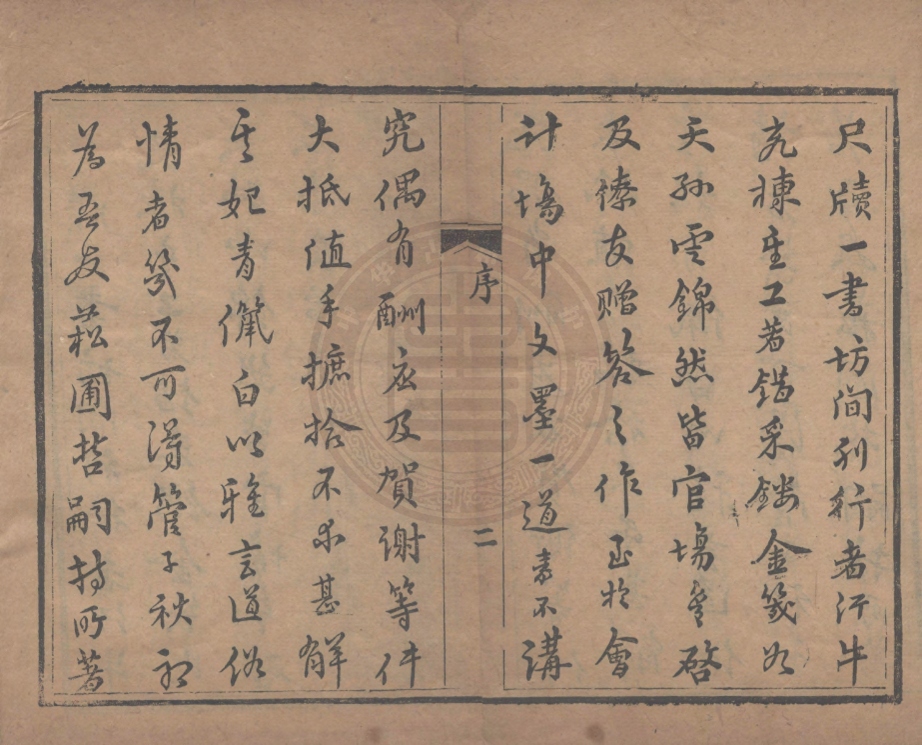 尺牘一書坊間刋行者汗牛
充棟至工者錯采鏤金幾如
天孫雲錦然皆官塲箋啓
及僚友贈答之作至於會
計塲中文墨一道素不講
序
二
究偶有酬応及賀謝等件
大抵值手摭拾不求甚解
其妃青儷白以雅言道俗
情者幾不可得管子秋初
為吾友菘圃哲嗣特所著